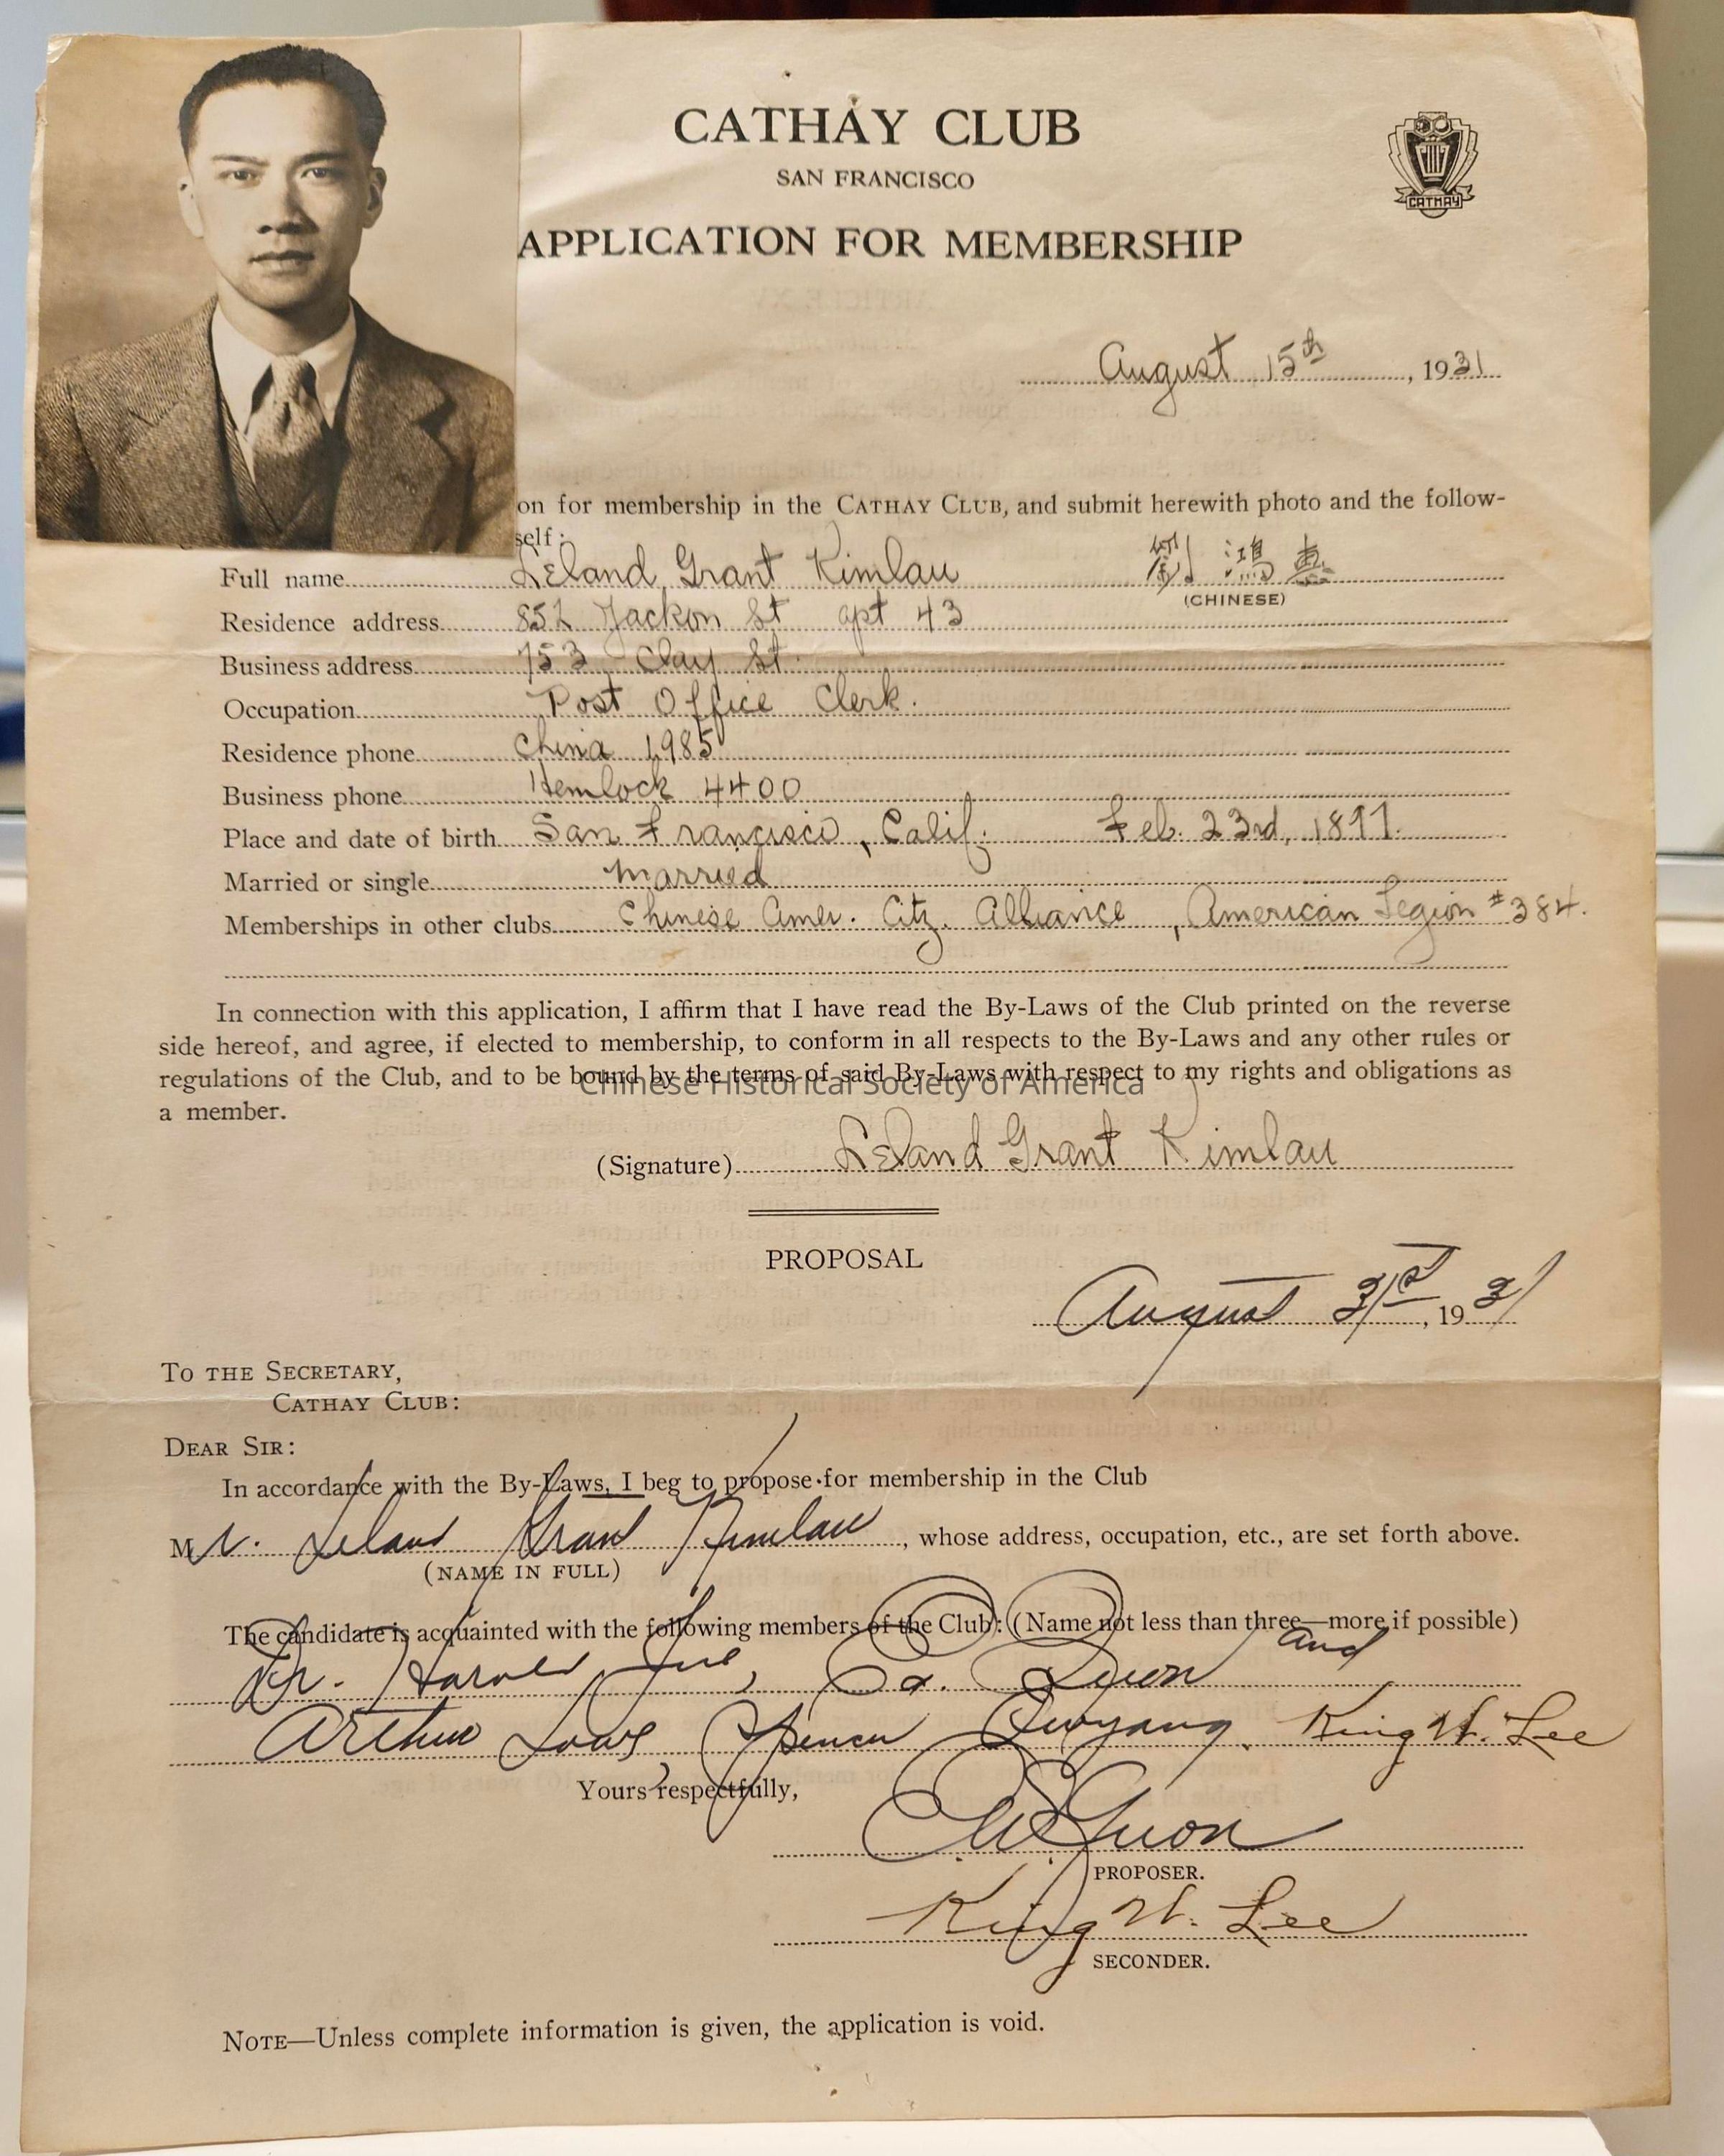 CATHAY CLUB
SAN FRANCISCO
CATHAY
APPLICATION FOR MEMBERSHIP
August 15th, 1931
on for membership in the CATHAY CLUB, and submit herewith photo and the follow-
self:
Full name Leland Grant Kimlau 劉 鴻 惠
(CHINESE)
Residence address 852 Jackon St apt 43
Business address 753 Clay St.
Occupation Post Office Clerk.
Residence phone China 1985
Business phone Hemlock 4400
Place and date of birth San Francisco, Calif. Feb. 23rd, 1897.
Married or single married
Memberships in other clubs Chinese Amer. Citz. Alliance, American Legion #384.
In connection with this application, I affirm that I have read the By-Laws of the Club printed on the reverse
side hereof, and agree, if elected to membership, to conform in all respects to the By-Laws and any other rules or
regulations of the Club, and to be bound by the terms of said By-Laws with respect to my rights and obligations as
Chinese Historical Society of America
a member.
(Signature) Leland Grant Kimlau
PROPOSAL
August 31st, 1931
TO THE SECRETARY,
CATHAY CLUB:
DEAR SIR:
In accordance with the By-Laws, I beg to propose for membership in the Club
Mr. Leland Grant Kimlau, whose address, occupation, etc., are set forth above.
(NAME IN FULL)
The candidate is acquainted with the following members of the Club: (Name not less than three—more if possible)
Dr. Harold and
Arthur Spencer Owyang. King W. Lee
Yours respectfully,
PROPOSER.
King W. Lee
SECONDER.
NOTE—Unless complete information is given, the application is void.